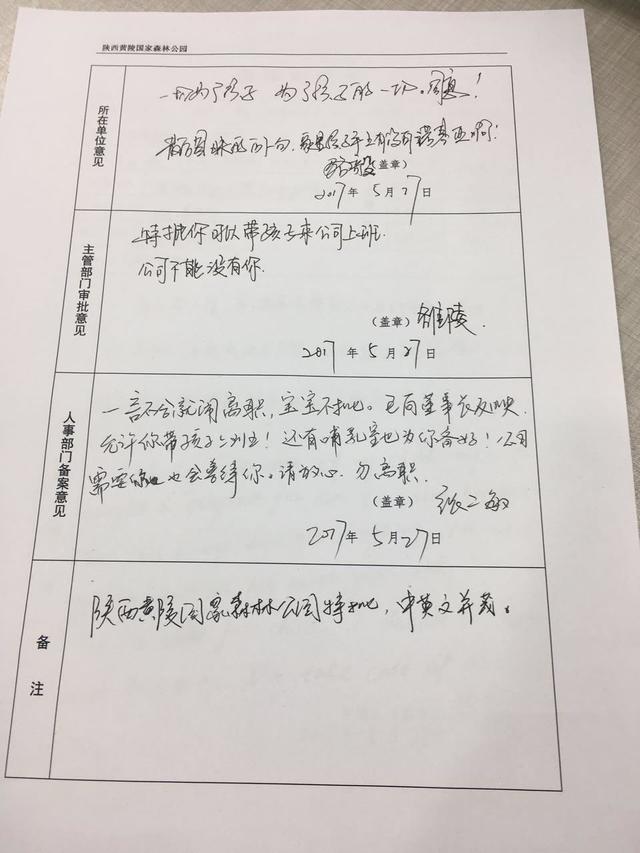 陕西黄陵国家森林公园
所在单位意见
一切为了孩子 为了孩子的一切。同意!
(盖章)
2017 年 5 月 27 日
主管部门审批意见
特批你可以带孩子来公司上班.
公司不能没有你.
(盖章)
2017 年 5 月 27 日
人事部门备案意见
一言不合就闹离职,宝宝不批。已向董事长反映,
允许你带孩子上班!还有哺乳室也为你备好!公司
需要你 也会善待你。请放心 勿离职.
(盖章) 张二敏
2017年 5月27日
备注
陕西黄陵国家森林公园特批,中英文并茂。